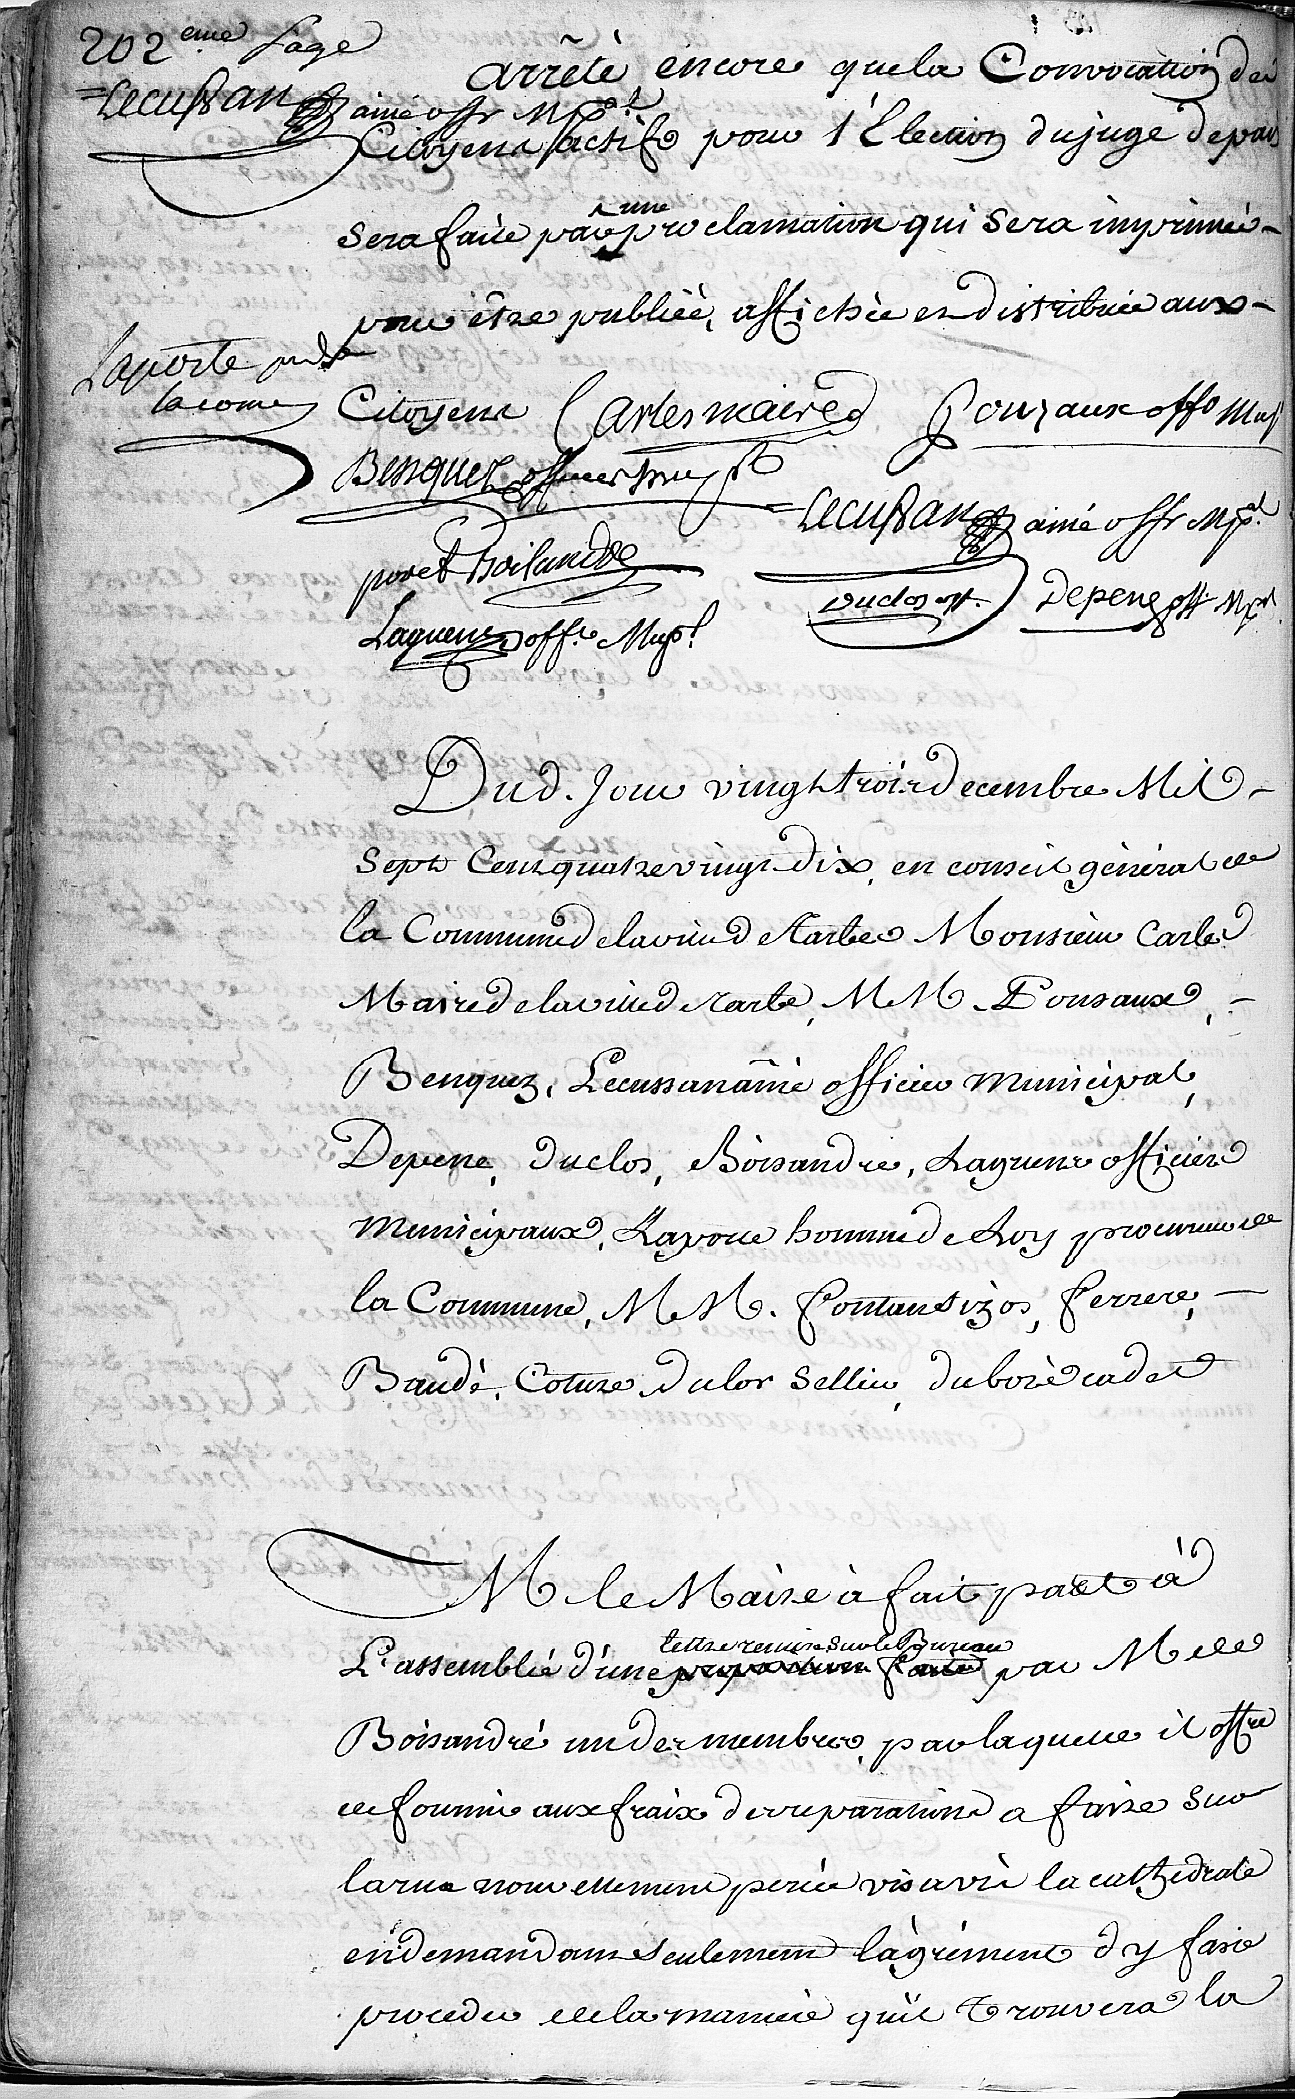 202 eme Page
Lecussan ainé offr Mpal
arrêté encore que la Convocation des
Citoyens actifs pour l'Election du juge de paix
sera faite par une proclamation qui sera imprimée
pour être publiée, affichée et distribuée aux
Laporte
la come
Citoyens Carles maire Gonzaux offo Mup
Benquez officier mupl
Lecussan ainé offr Mpal
poret Boisandré
Duclos off. Depene off. Mpl
Laguens offr. Mupl
Dud. Jour vingt trois decembre Mil
Sept Cent quatre vingt dix, en conseil général de
la Commune de la ville de Tarbes Monsieur Carles
Maire de la ville de Tarbe, MM. Gonsaux,
Benquez, Lecussan ainé officier municipal,
Depene, Duclos, Boisandré, Laguens officiers
Municipaux, Laporte homme de Loy procureur de
la Commune, MM. fontan sizos, ferrere,
Baudé, Coture, Duclos Sellier, duboé cadet
M le Maire à fait part à
L'assemblée d'une lettre remise sur le Bureau
proposition faite par M de
Boisandré un des membres par laquelle il offre
de fournir aux fraix des reparations a faire sur
la rue nouvellement percée vis a vis la cathedrale
en demandant seulement l'agrément d'y faire
proceder de la maniere qu'il trouvera la